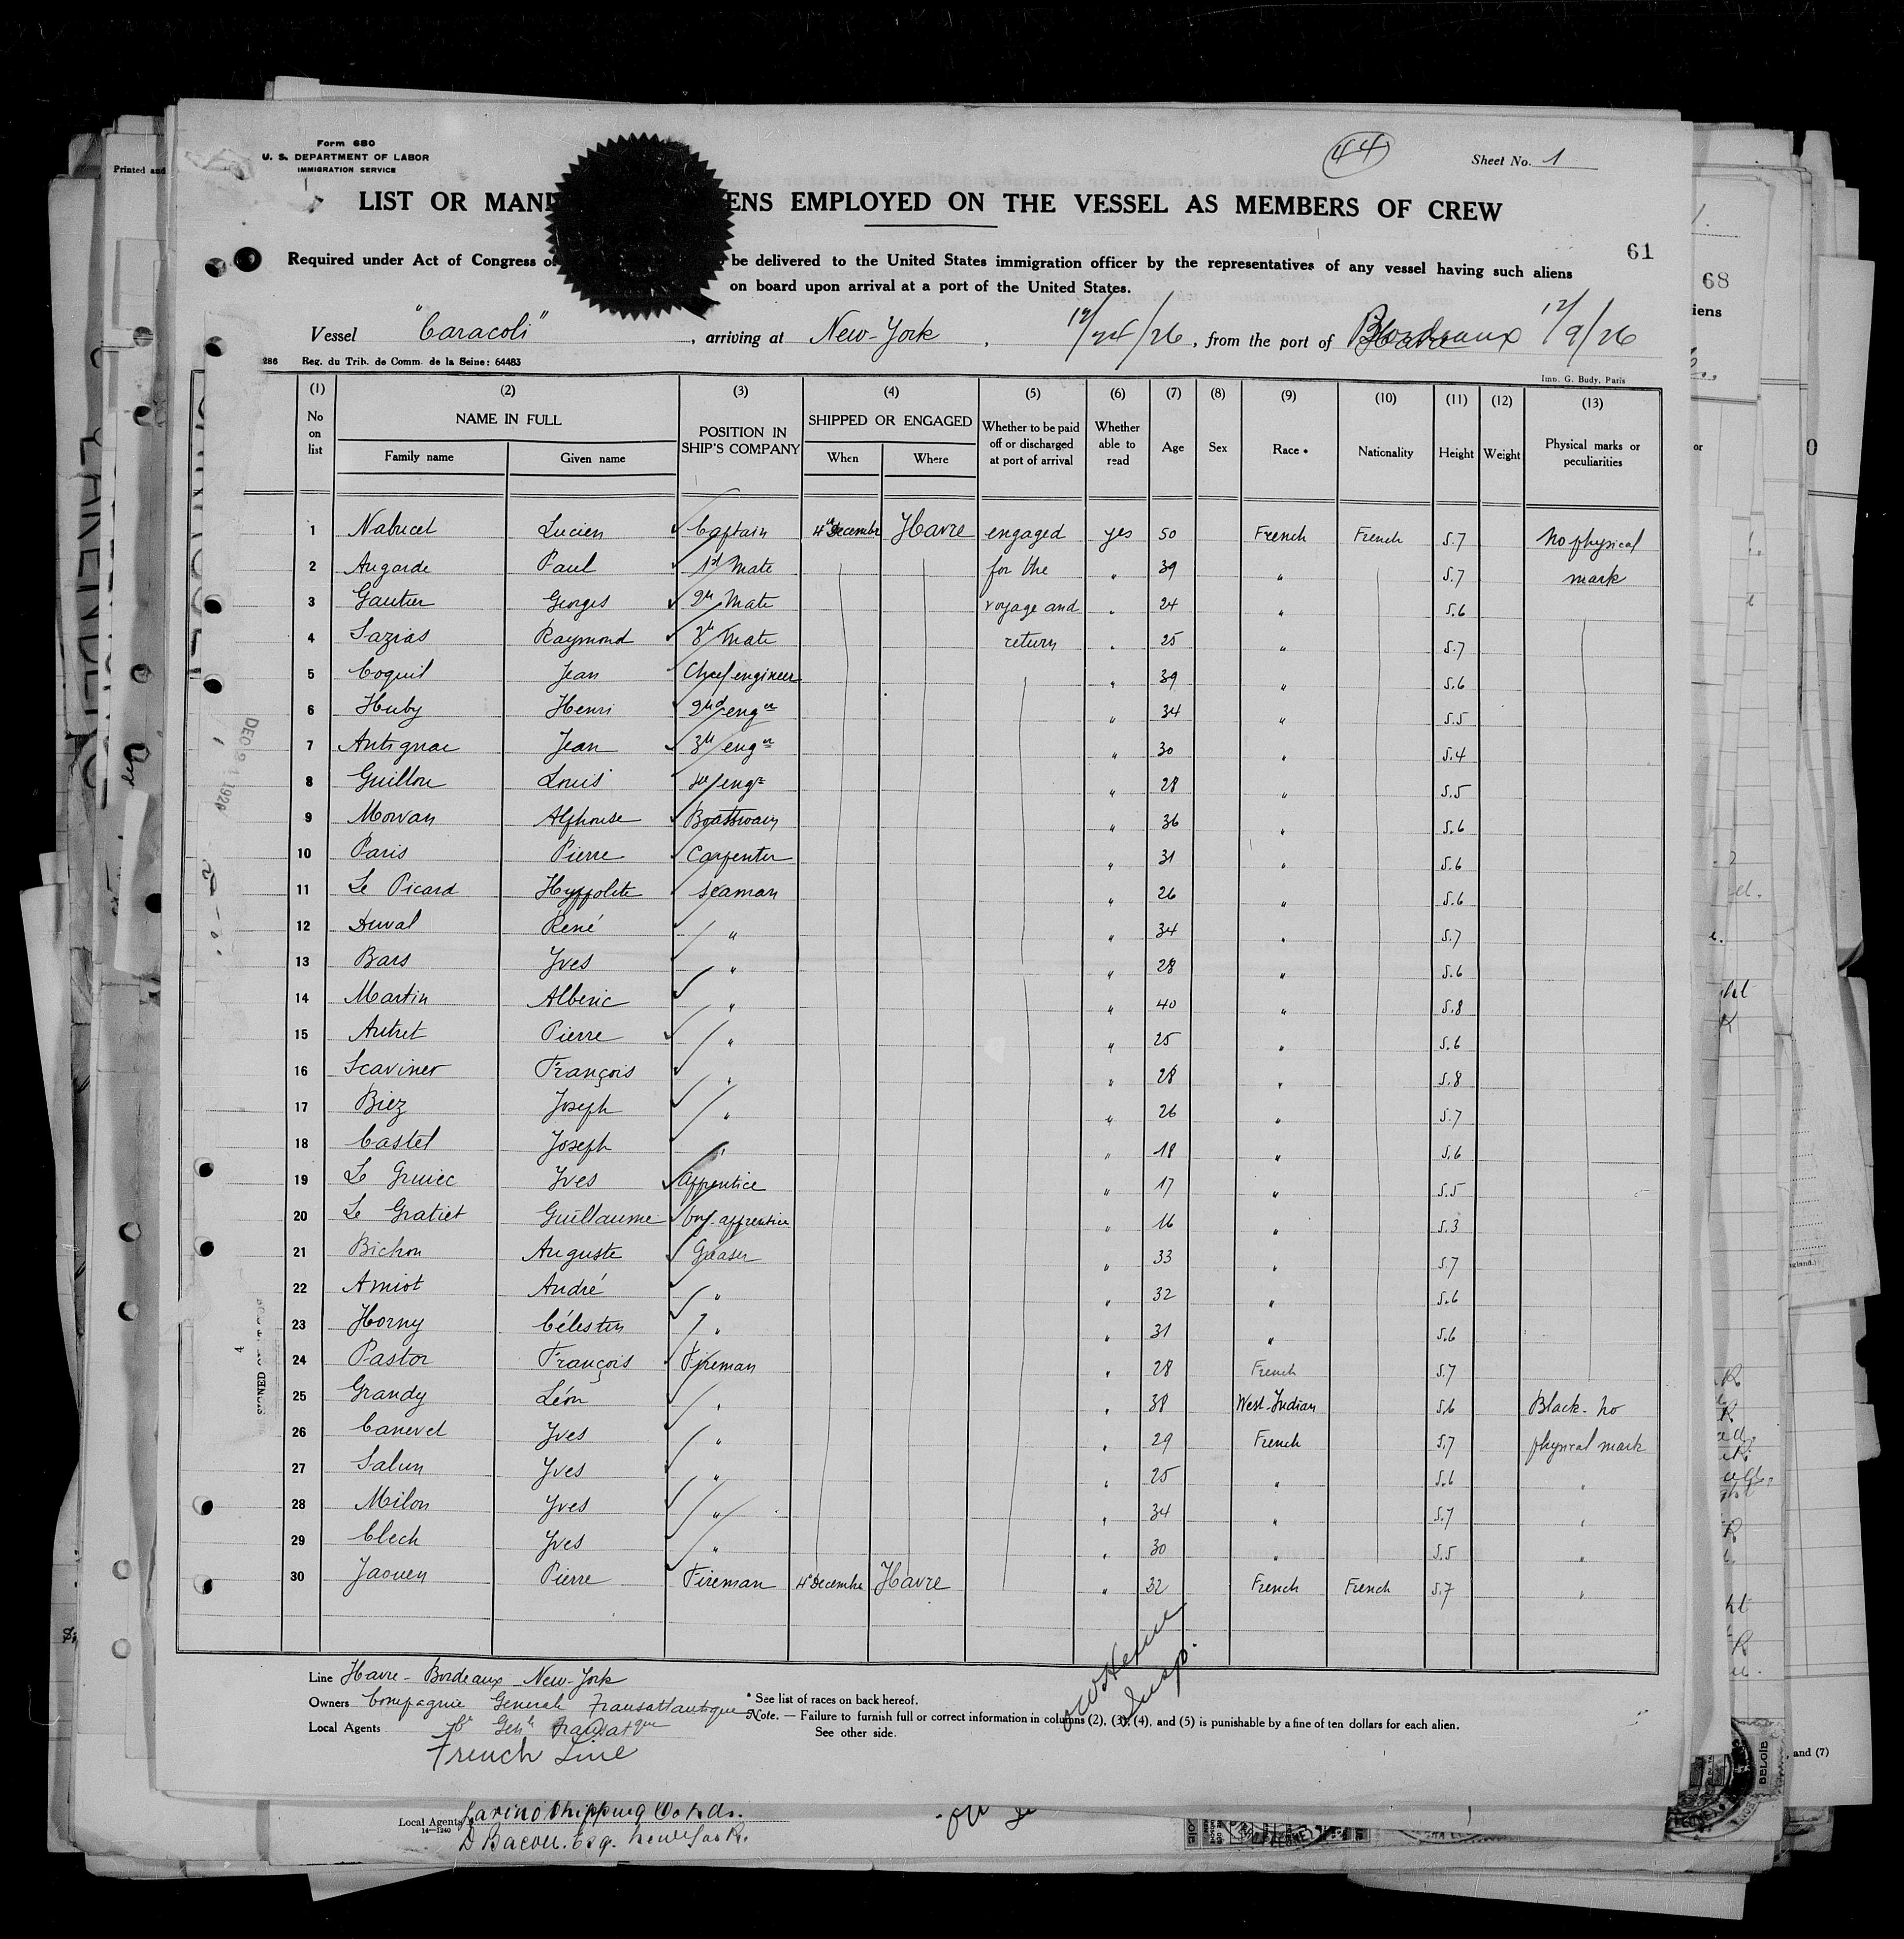 Form 680
U. S. DEPARTMENT OF LABOR
IMMIGRATION SERVICE
44
Sheet No. 1
LIST OR MANI ENS EMPLOYED ON THE VESSEL AS MEMBERS OF CREW
61
Required under Act of Congress of be delivered to the United States immigration officer by the representatives of any vessel having such aliens
on board upon arrival at a port of the United States.
Vessel "Caracoli", arriving at New-York, 12/24/26, from the port of Bordeaux 12/9/26
286 Reg. du Trib. de Comm. de la Seine: 64483
Imp. G. Budy, Paris
(1) (2) (3) (4) (5) (6) (7) (8) (9) (10) (11) (12) (13)
No on list NAME IN FULL Family name Given name POSITION IN SHIP'S COMPANY SHIPPED OR ENGAGED When Where Whether to be paid off or discharged at port of arrival Whether able to read Age Sex Race * Nationality Height Weight Physical marks or peculiarities
1 Nabucet Lucien Captain 4th December Havre engaged yes 50 French French 5.7 No physical
2 Augarde Paul 1st Mate for the " 39 " 5.7 mark
3 Gautier Georges 2d Mate voyage and " 24 " 5.6
4 Sazias Raymond 3d Mate return " 25 " 5.7
5 Coquil Jean Chief engineer " 39 " 5.6
6 Huby Henri 2nd enger " 34 " 5.5
7 Antignac Jean 3d enger " 30 " 5.4
8 Guillou Louis engr " 28 " 5.5
9 Morvan Alphonse Boatswain " 36 " 5.6
10 Paris Pierre Carpenter " 31 " 5.6
11 Le Picard Hyppolite seaman " 26 " 5.6
12 Duval René " " 34 " 5.7
13 Bars Yves " " 28 " 5.6
14 Martin Alberic " " 40 " 5.8
15 Autret Pierre " " 25 " 5.6
16 Scaviner François " " 28 " 5.8
17 Biez Joseph " " 26 " 5.7
18 Castel Joseph " " 18 " 5.6
19 Le Gruiec Yves apprentice " 17 " 5.5
20 Le Gratiet Guillaume boy-apprentice " 16 " 5.3
21 Bichon Auguste Greaser " 33 " 5.7
22 Amiot André " " 32 " 5.6
23 Horny Célestin " " 31 " 5.6
24 Pastor François Fireman " 28 French 5.7
25 Grandy Léon " " 38 West-Indian 5.6 Black - No
26 Canevet Yves " " 29 French 5.7 physical mark
27 Salun Yves " " 25 " 5.6 "
28 Milon Yves " " 34 " 5.7 "
29 Clech Yves " " 30 " 5.5 "
30 Jaouen Pierre Fireman 4th December Havre " 32 French French 5.7 "
Line Havre - Bordeaux - New-York
Owners Compagnie Generale Transatlantique
* See list of races on back hereof.
Note. — Failure to furnish full or correct information in columns (2), (3), (4), and (5) is punishable by a fine of ten dollars for each alien.
See other side.
Local Agents Cie Genle Transatque
French Line
Insp.
Local Agents
14—1240
D Bacon. Esq. New York.
Printed and
68
iens
or
0
and (7)